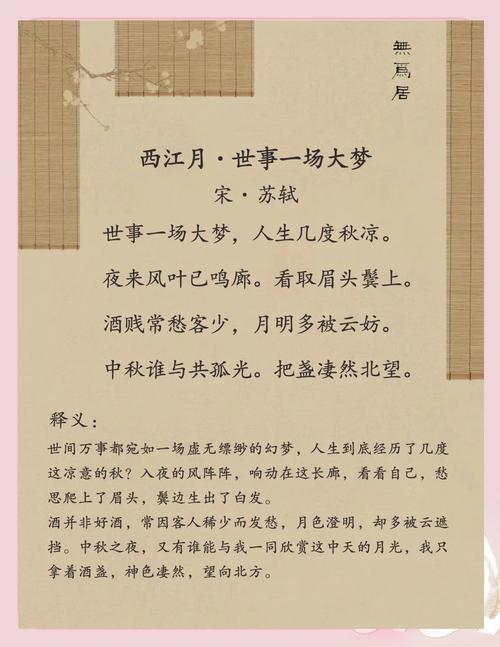 無為居
西江月·世事一场大梦
宋·苏轼
世事一场大梦，人生几度秋凉。
夜来风叶已鸣廊。看取眉头鬓上。
酒贱常愁客少，月明多被云妨。
中秋谁与共孤光。把盏凄然北望。
释义：
世间万事都宛如一场虚无缥缈的幻梦，人生到底经历了几度
这凉意的秋？入夜的风阵阵，响动在这长廊，看看自己，愁
思爬上了眉头，鬓边生出了白发。
酒并非好酒，常因客人稀少而发愁，月色澄明，却多被云遮
挡。中秋之夜，又有谁能与我一同欣赏这中天的月光，我只
拿着酒盏，神色凄然，望向北方。